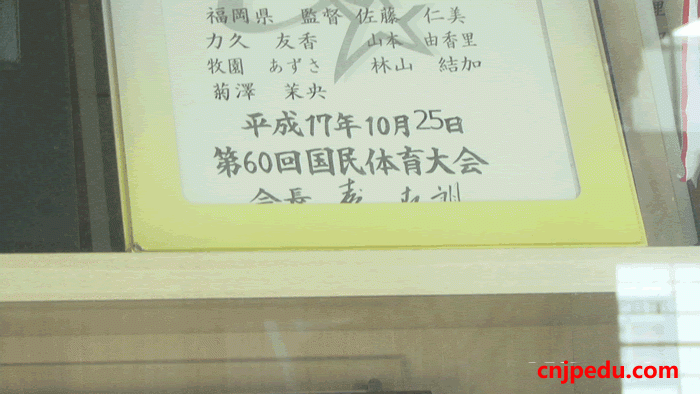 福岡県 監督 佐藤 仁美
力久 友香 山本 由香里
牧園 あずさ 林山 結加
菊澤 茉央
平成17年10月25日
第60回国民体育大会
会長
里
cnjpedu.com